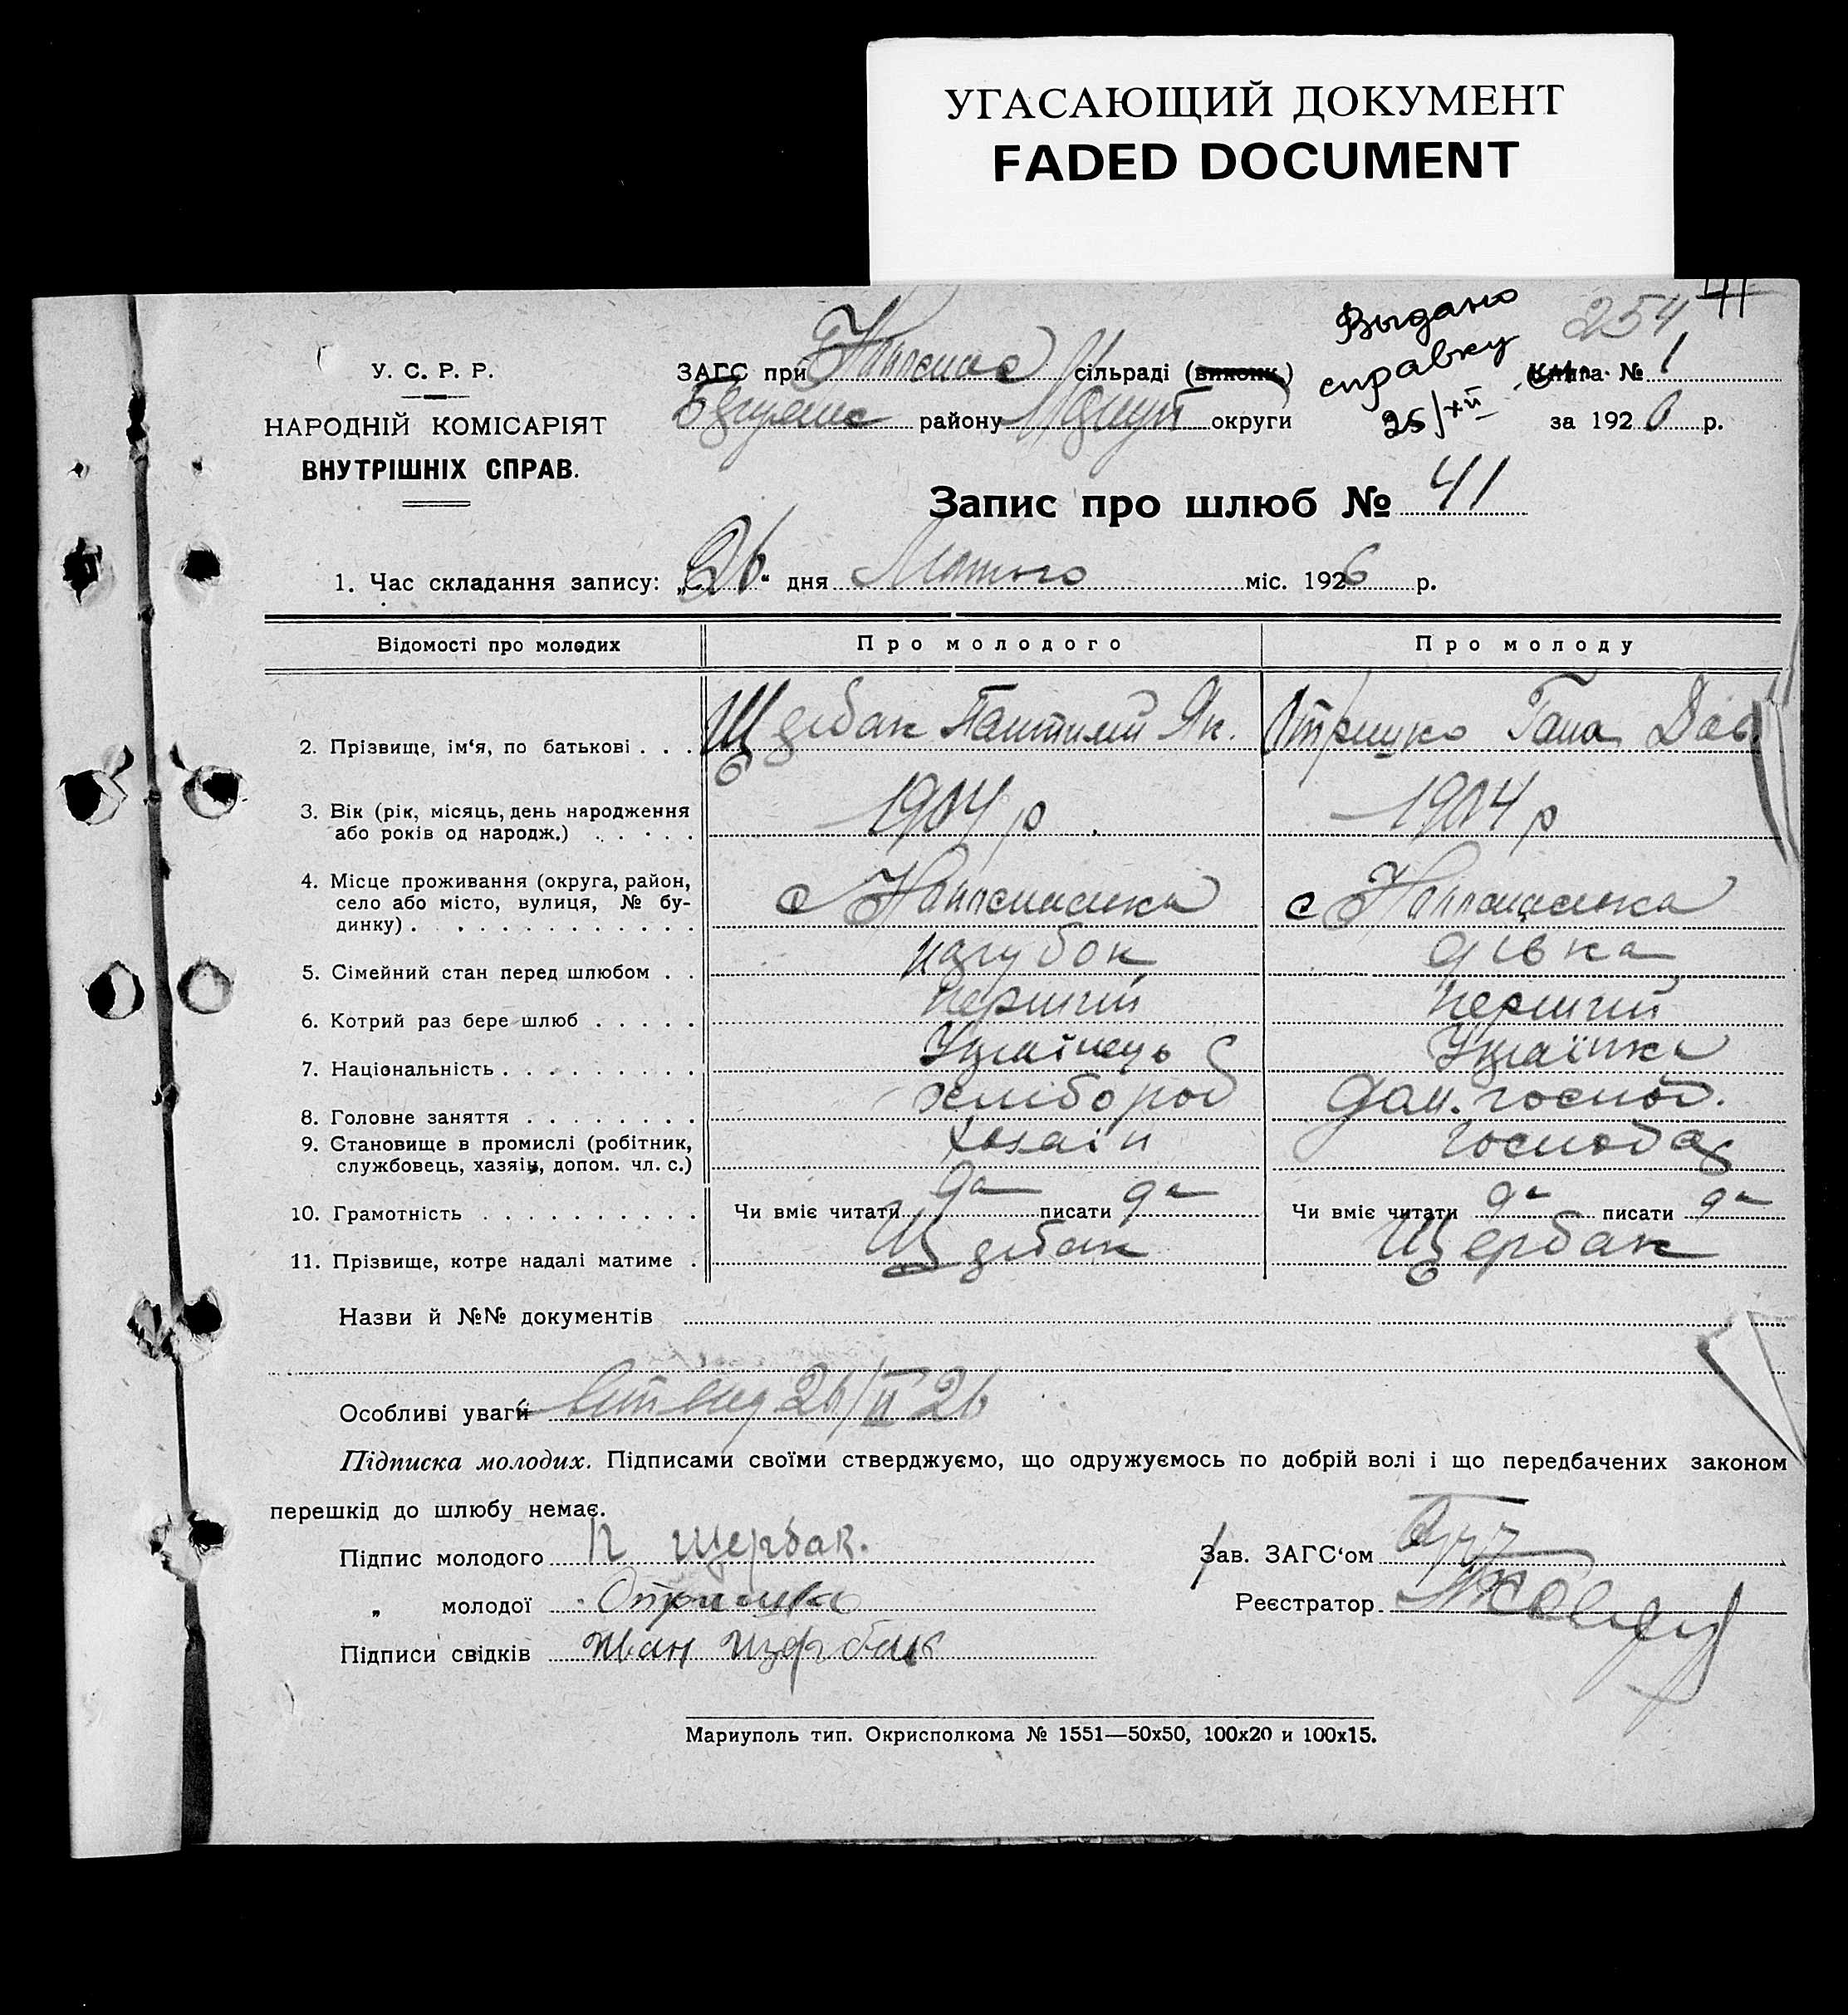 УГАСАЮЩИЙ ДОКУМЕНТ
FADED DOCUMENT
254 41
Выдано
справку
25/XII
У. С. Р. Р.
НАРОДНІЙ КОМІСАРІЯТ
ВНУТРІШНІХ СПРАВ.
ЗАГС при сільраді (виконк.) Книга № 1
району округи за 1926 р.
Запис про шлюб № 41
1. Час складання запису: „26“ дня Лютого міс. 1926 р.
Відомості про молодих Про молодого Про молоду
2. Прізвище, ім‘я, по батькові . . . Щербак Як. Отришко Гана Дав.
3. Вік (рік, місяць, день народження
або років од народж.) . . . . . 1904 р. 1904 р
4. Місце проживання (округа, район,
село або місто, вулиця, № бу-
динку) . . . . . . . . . . . . с с
5. Сімейний стан перед шлюбом . . парубок дівка
6. Котрий раз бере шлюб . . . . . перший перший
7. Національність . . . . . . . . . Українець Українка
8. Головне заняття . . . . . . . . хлібороб дом. господ.
9. Становище в промислі (робітник,
службовець, хазяїн, допом. чл. с.) хазаін господар
10. Грамотність . . . . . . . . . . Чи вміє читати да писати да Чи вміє читати да писати да
11. Прізвище, котре надалі матиме . Щербак Щербак
Назви й №№ документів
Особливі уваги 26/II 26
Підписка молодих. Підписами своїми стверджуємо, що одружуємось по добрій волі і що передбачених законом
перешкід до шлюбу немає.
Підпис молодого П Щербак. Зав. ЗАГС‘ом
„ молодої Отришко Реєстратор
Підписи свідків Иван Щербак
Мариуполь тип. Окрисполкома № 1551—50х50, 100х20 и 100х15.